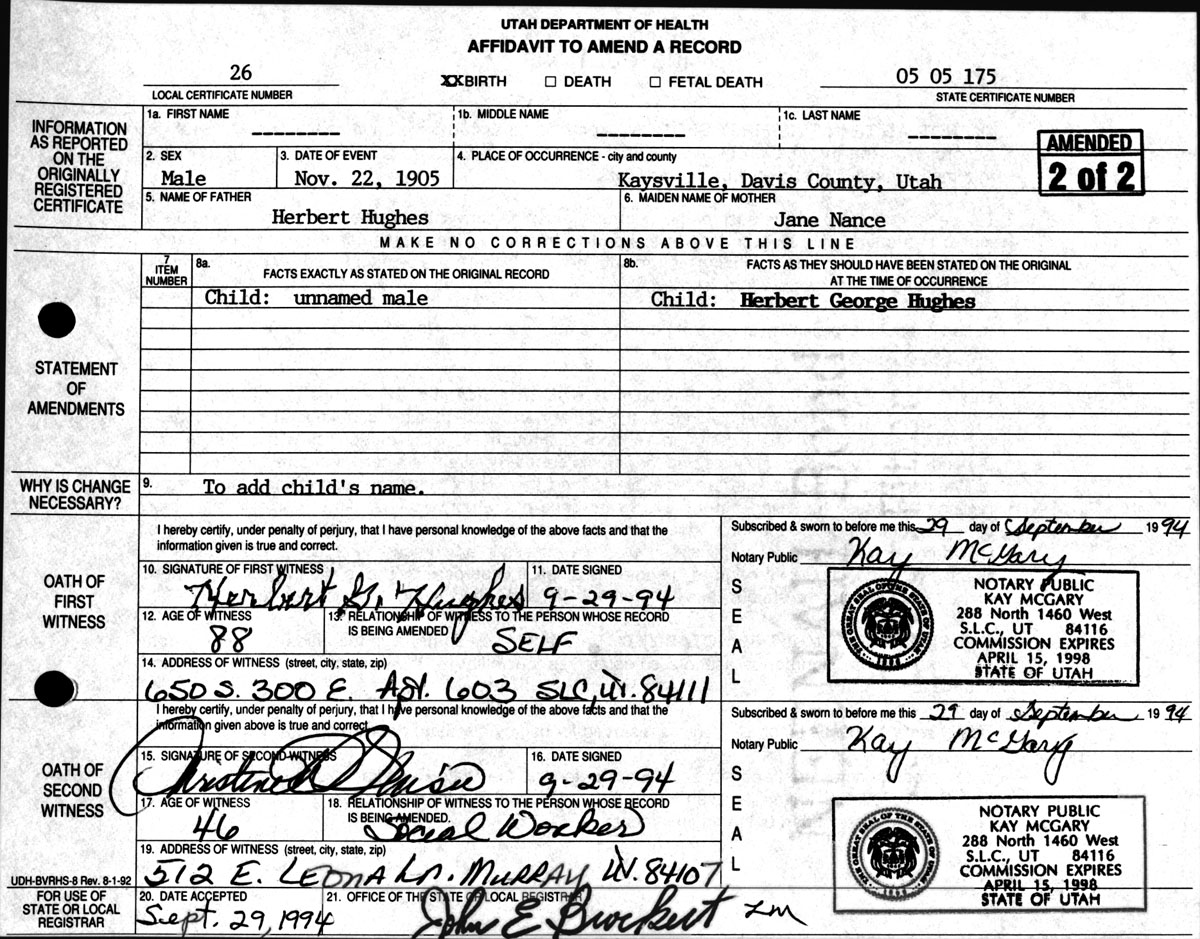 UTAH DEPARTMENT OF HEALTH
AFFIDAVIT TO AMEND A RECORD
26
LOCAL CERTIFICATE NUMBER
XXBIRTH ☐ DEATH ☐ FETAL DEATH
05 05 175
STATE CERTIFICATE NUMBER
INFORMATION AS REPORTED ON THE ORIGINALLY REGISTERED CERTIFICATE
1a. FIRST NAME
--------
1b. MIDDLE NAME
--------
1c. LAST NAME
--------
AMENDED
2 of 2
2. SEX
Male
3. DATE OF EVENT
Nov. 22, 1905
4. PLACE OF OCCURRENCE - city and county
Kaysville, Davis County, Utah
5. NAME OF FATHER
Herbert Hughes
6. MAIDEN NAME OF MOTHER
Jane Nance
MAKE NO CORRECTIONS ABOVE THIS LINE
STATEMENT OF AMENDMENTS
7 ITEM NUMBER
8a. FACTS EXACTLY AS STATED ON THE ORIGINAL RECORD
8b. FACTS AS THEY SHOULD HAVE BEEN STATED ON THE ORIGINAL
AT THE TIME OF OCCURRENCE
Child: unnamed male
Child: Herbert George Hughes
WHY IS CHANGE NECESSARY?
9. To add child's name.
OATH OF FIRST WITNESS
I hereby certify, under penalty of perjury, that I have personal knowledge of the above facts and that the
information given is true and correct.
10. SIGNATURE OF FIRST WITNESS
Herbert G. Hughes
11. DATE SIGNED
9-29-94
12. AGE OF WITNESS
88
13. RELATIONSHIP OF WITNESS TO THE PERSON WHOSE RECORD
IS BEING AMENDED
SELF
14. ADDRESS OF WITNESS (street, city, state, zip)
650 S. 300 E. Apt. 603 SLC, Ut. 84111
Subscribed & sworn to before me this 29 day of September 19 94
Notary Public Kay McGary
SEAL
NOTARY PUBLIC
KAY MCGARY
288 North 1460 West
S.L.C., UT 84116
COMMISSION EXPIRES
APRIL 15, 1998
STATE OF UTAH
OATH OF SECOND WITNESS
I hereby certify, under penalty of perjury, that I have personal knowledge of the above facts and that the
information given above is true and correct.
15. SIGNATURE OF SECOND WITNESS
16. DATE SIGNED
9-29-94
17. AGE OF WITNESS
46
18. RELATIONSHIP OF WITNESS TO THE PERSON WHOSE RECORD
IS BEING AMENDED.
Social Worker
19. ADDRESS OF WITNESS (street, city, state, zip)
512 E. LEONA Ln. MURRAY Ut. 84107
Subscribed & sworn to before me this 29 day of September 19 94
Notary Public Kay McGary
SEAL
NOTARY PUBLIC
KAY MCGARY
288 North 1460 West
S.L.C., UT 84116
COMMISSION EXPIRES
APRIL 15, 1998
STATE OF UTAH
UDH-BVRHS-8 Rev. 8-1-92
FOR USE OF STATE OR LOCAL REGISTRAR
20. DATE ACCEPTED
Sept. 29, 1994
21. OFFICE OF THE STATE OR LOCAL REGISTRAR
John E Brockert